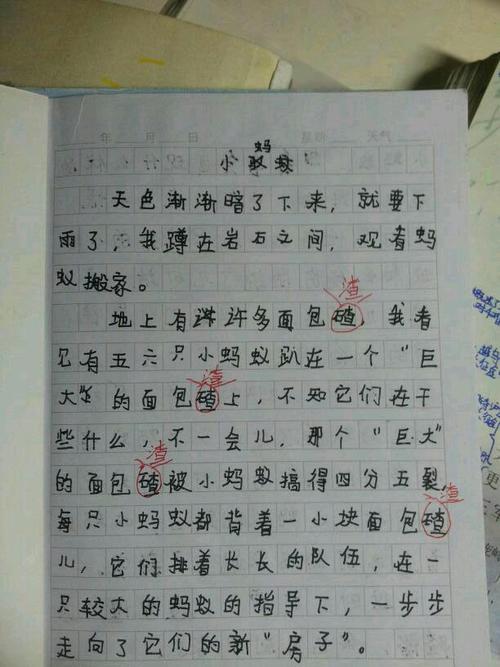 小蚂蚁
天色渐渐暗了下来，就要下
雨了，我蹲在岩石之间，观看蚂
蚁搬家。
渣
地上有许多面包碴，我看
见有五六只小蚂蚁趴在一个“巨
渣
大”的面包碴上，不知它们在干
些什么，不一会儿，那个“巨大”
渣
的面包碴被小蚂蚁搞得四分五裂，
渣
每只小蚂蚁都背着一小块面包碴
儿，它们排着长长的队伍，在一
只较大的蚂蚁的指导下，一步步
走向了它们的新“房子”。